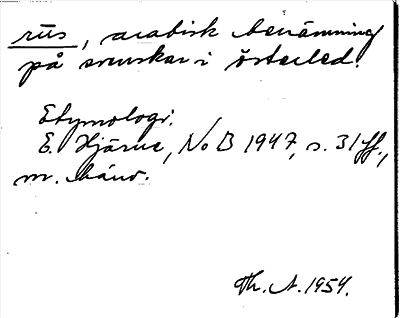 rūs, arabisk benämning
på svenskar i österled.
Etymologi.
E. Hjärne, NoB 1947, s. 31 ff.,
m. hänv.
Th. A. 1954.